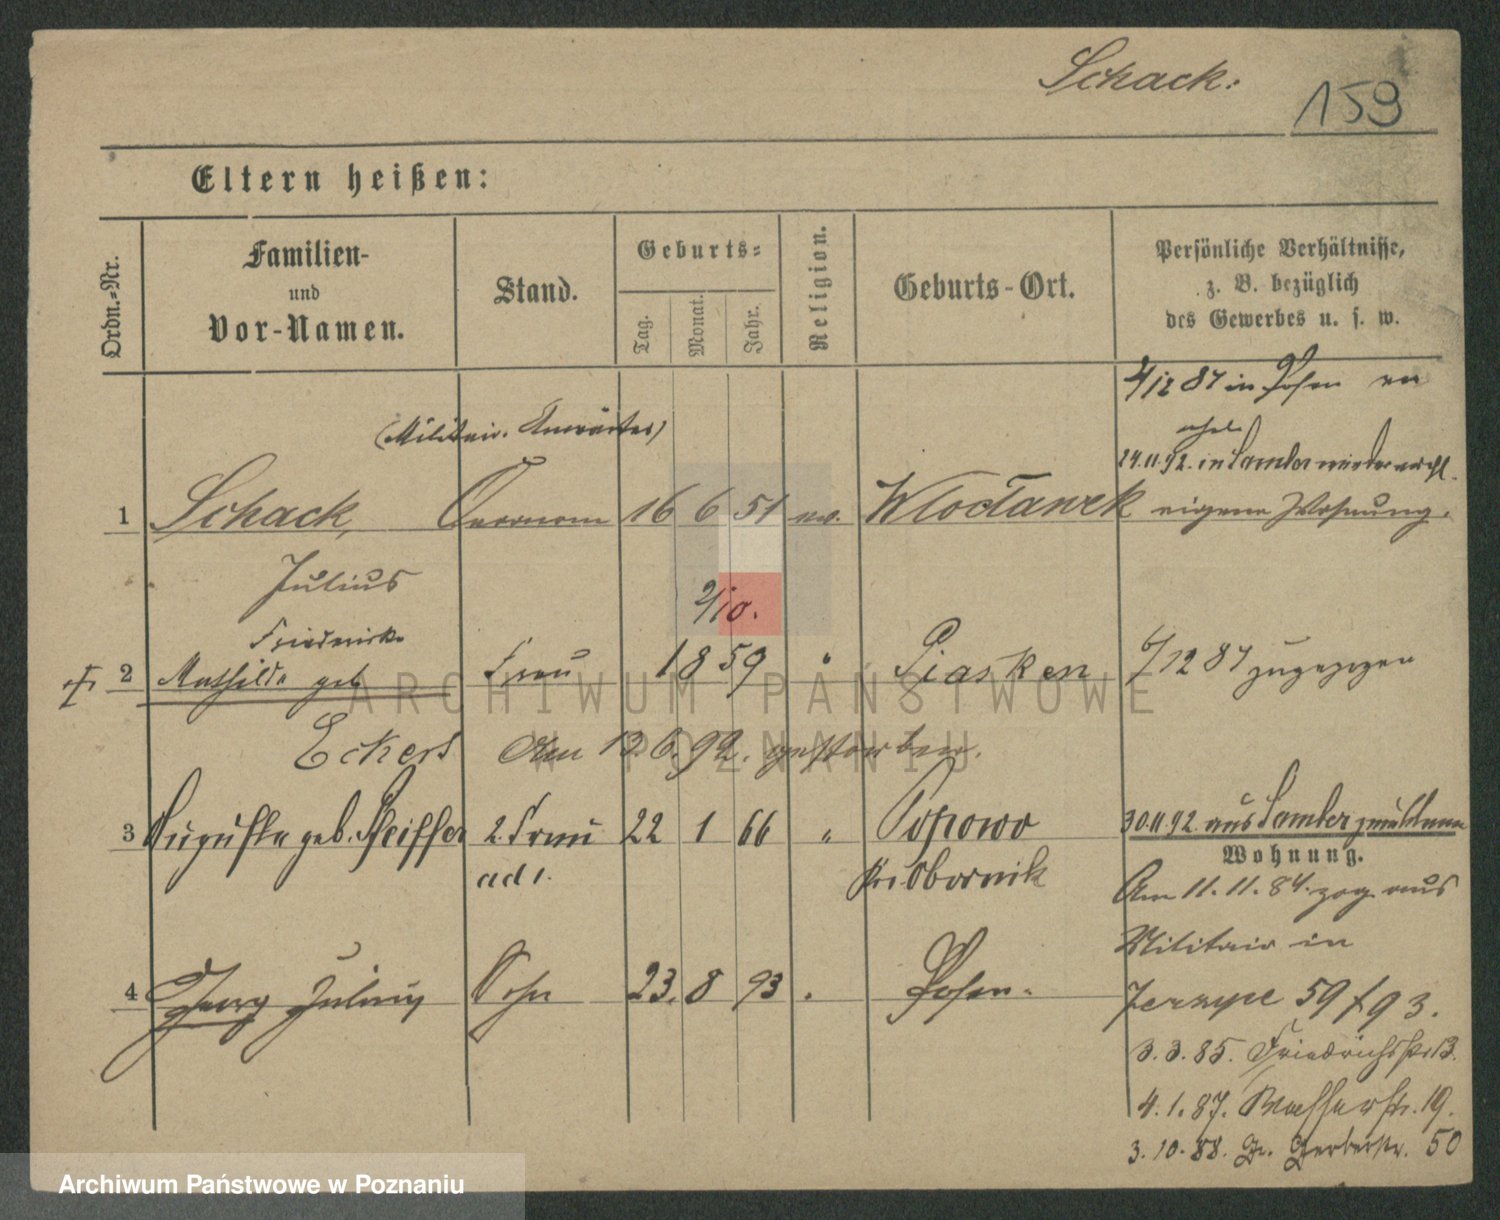 Schack:
159
Eltern heißen:
Ordn.-Nr.
Familien-
und
Vor-Namen.
Stand.
Geburts-
Tag.
Monat.
Jahr.
Religion.
Geburts-Ort.
Persönliche Verhältnisse,
z. B. bezüglich
des Gewerbes u. s. w.
4/12 87 in Posen ver
ehel.
(Militair. Anwärter)
24.11.92. in Samter wieder
1 Schack, 16 6 51 ev. Wloclawek eigene Wohnung.
Julius
2/10.
Friedericke
2 Mathilde geb Frau 1 8 59 " Piasken 6/12 87 zugezogen
Eckert Am 13.6.92. gestorben.
3 Auguste geb. Pfeiffer 2. Frau 22 1 66 " Popowo 30.11.92. aus Samter
ad 1. Kr. Obornik
Wohnung.
Am 11.11.84. zog aus
Militair in
4 Georg Julius Sohn 23. 8 93 . Posen.
Jerzyce 59 f 93.
3.3.85. Friedrichstr 13.
4.1.87. Wasserstr. 19.
3.10.88. Gr. Gerberstr. 50
ARCHIWUM PAŃSTWOWE
W POZNANIU
Archiwum Państwowe w Poznaniu